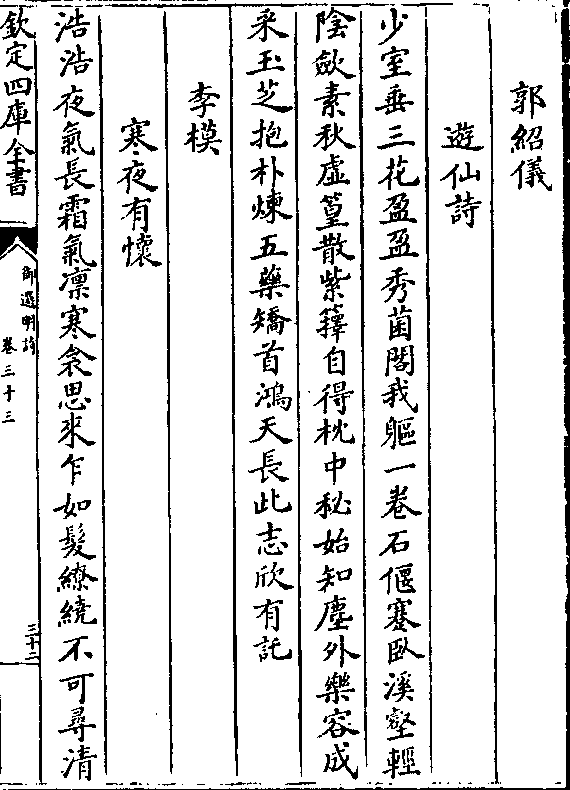 郭紹儀
遊仙詩
少室垂三花盈盈秀菌閣我軀一卷石偃蹇臥溪壑輕
陰歛素秋虛篁散紫籜自得枕中秘始知塵外樂容成
采玉芝抱朴煉五藥矯首鴻天長此志欣有託
李模
寒夜有懷
浩浩夜氣長霜氣凛寒衾思來乍如髮繚繞不可尋清
欽定四庫全書
御選明詩
卷三十三
三十二